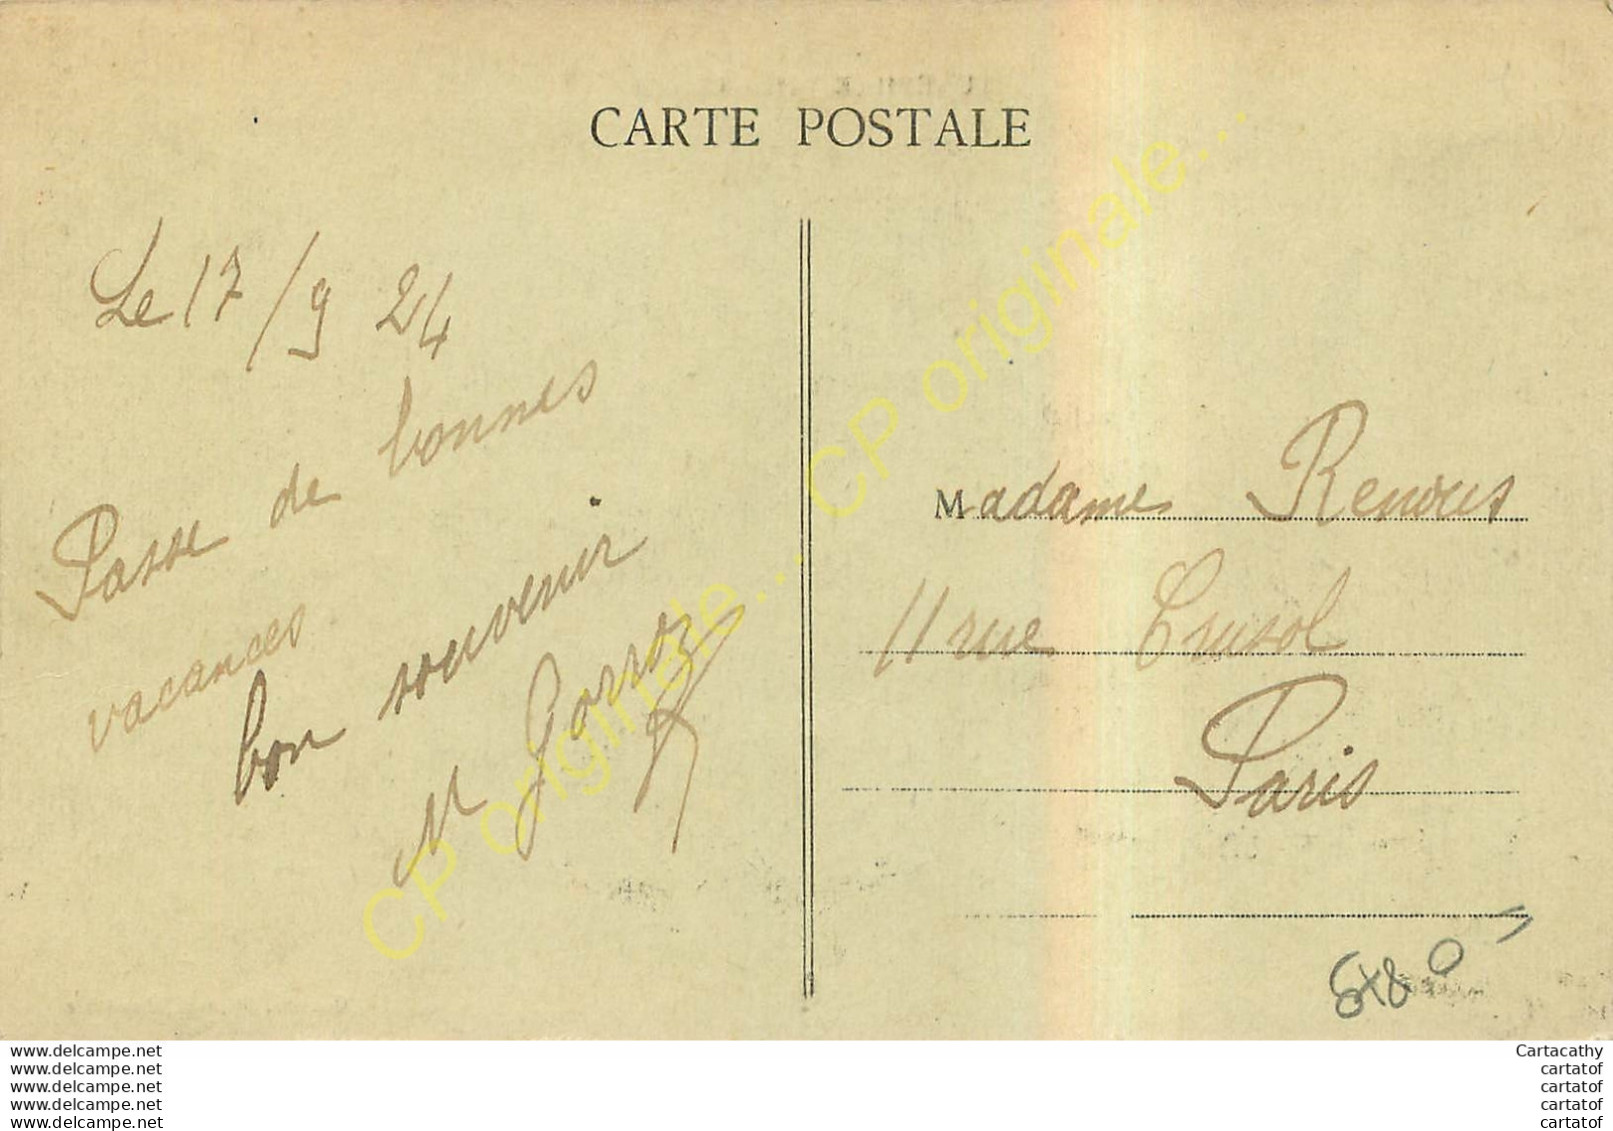 CARTE POSTALE
Le 17/9 24
Passe de bonnes
vacances
bon souvenir
M
Madame
11 rue
Paris
CP originale... CP originale...
www.delcampe.net
www.delcampe.net
www.delcampe.net
www.delcampe.net
www.delcampe.net
Cartacathy
cartatof
cartatof
cartatof
cartatof